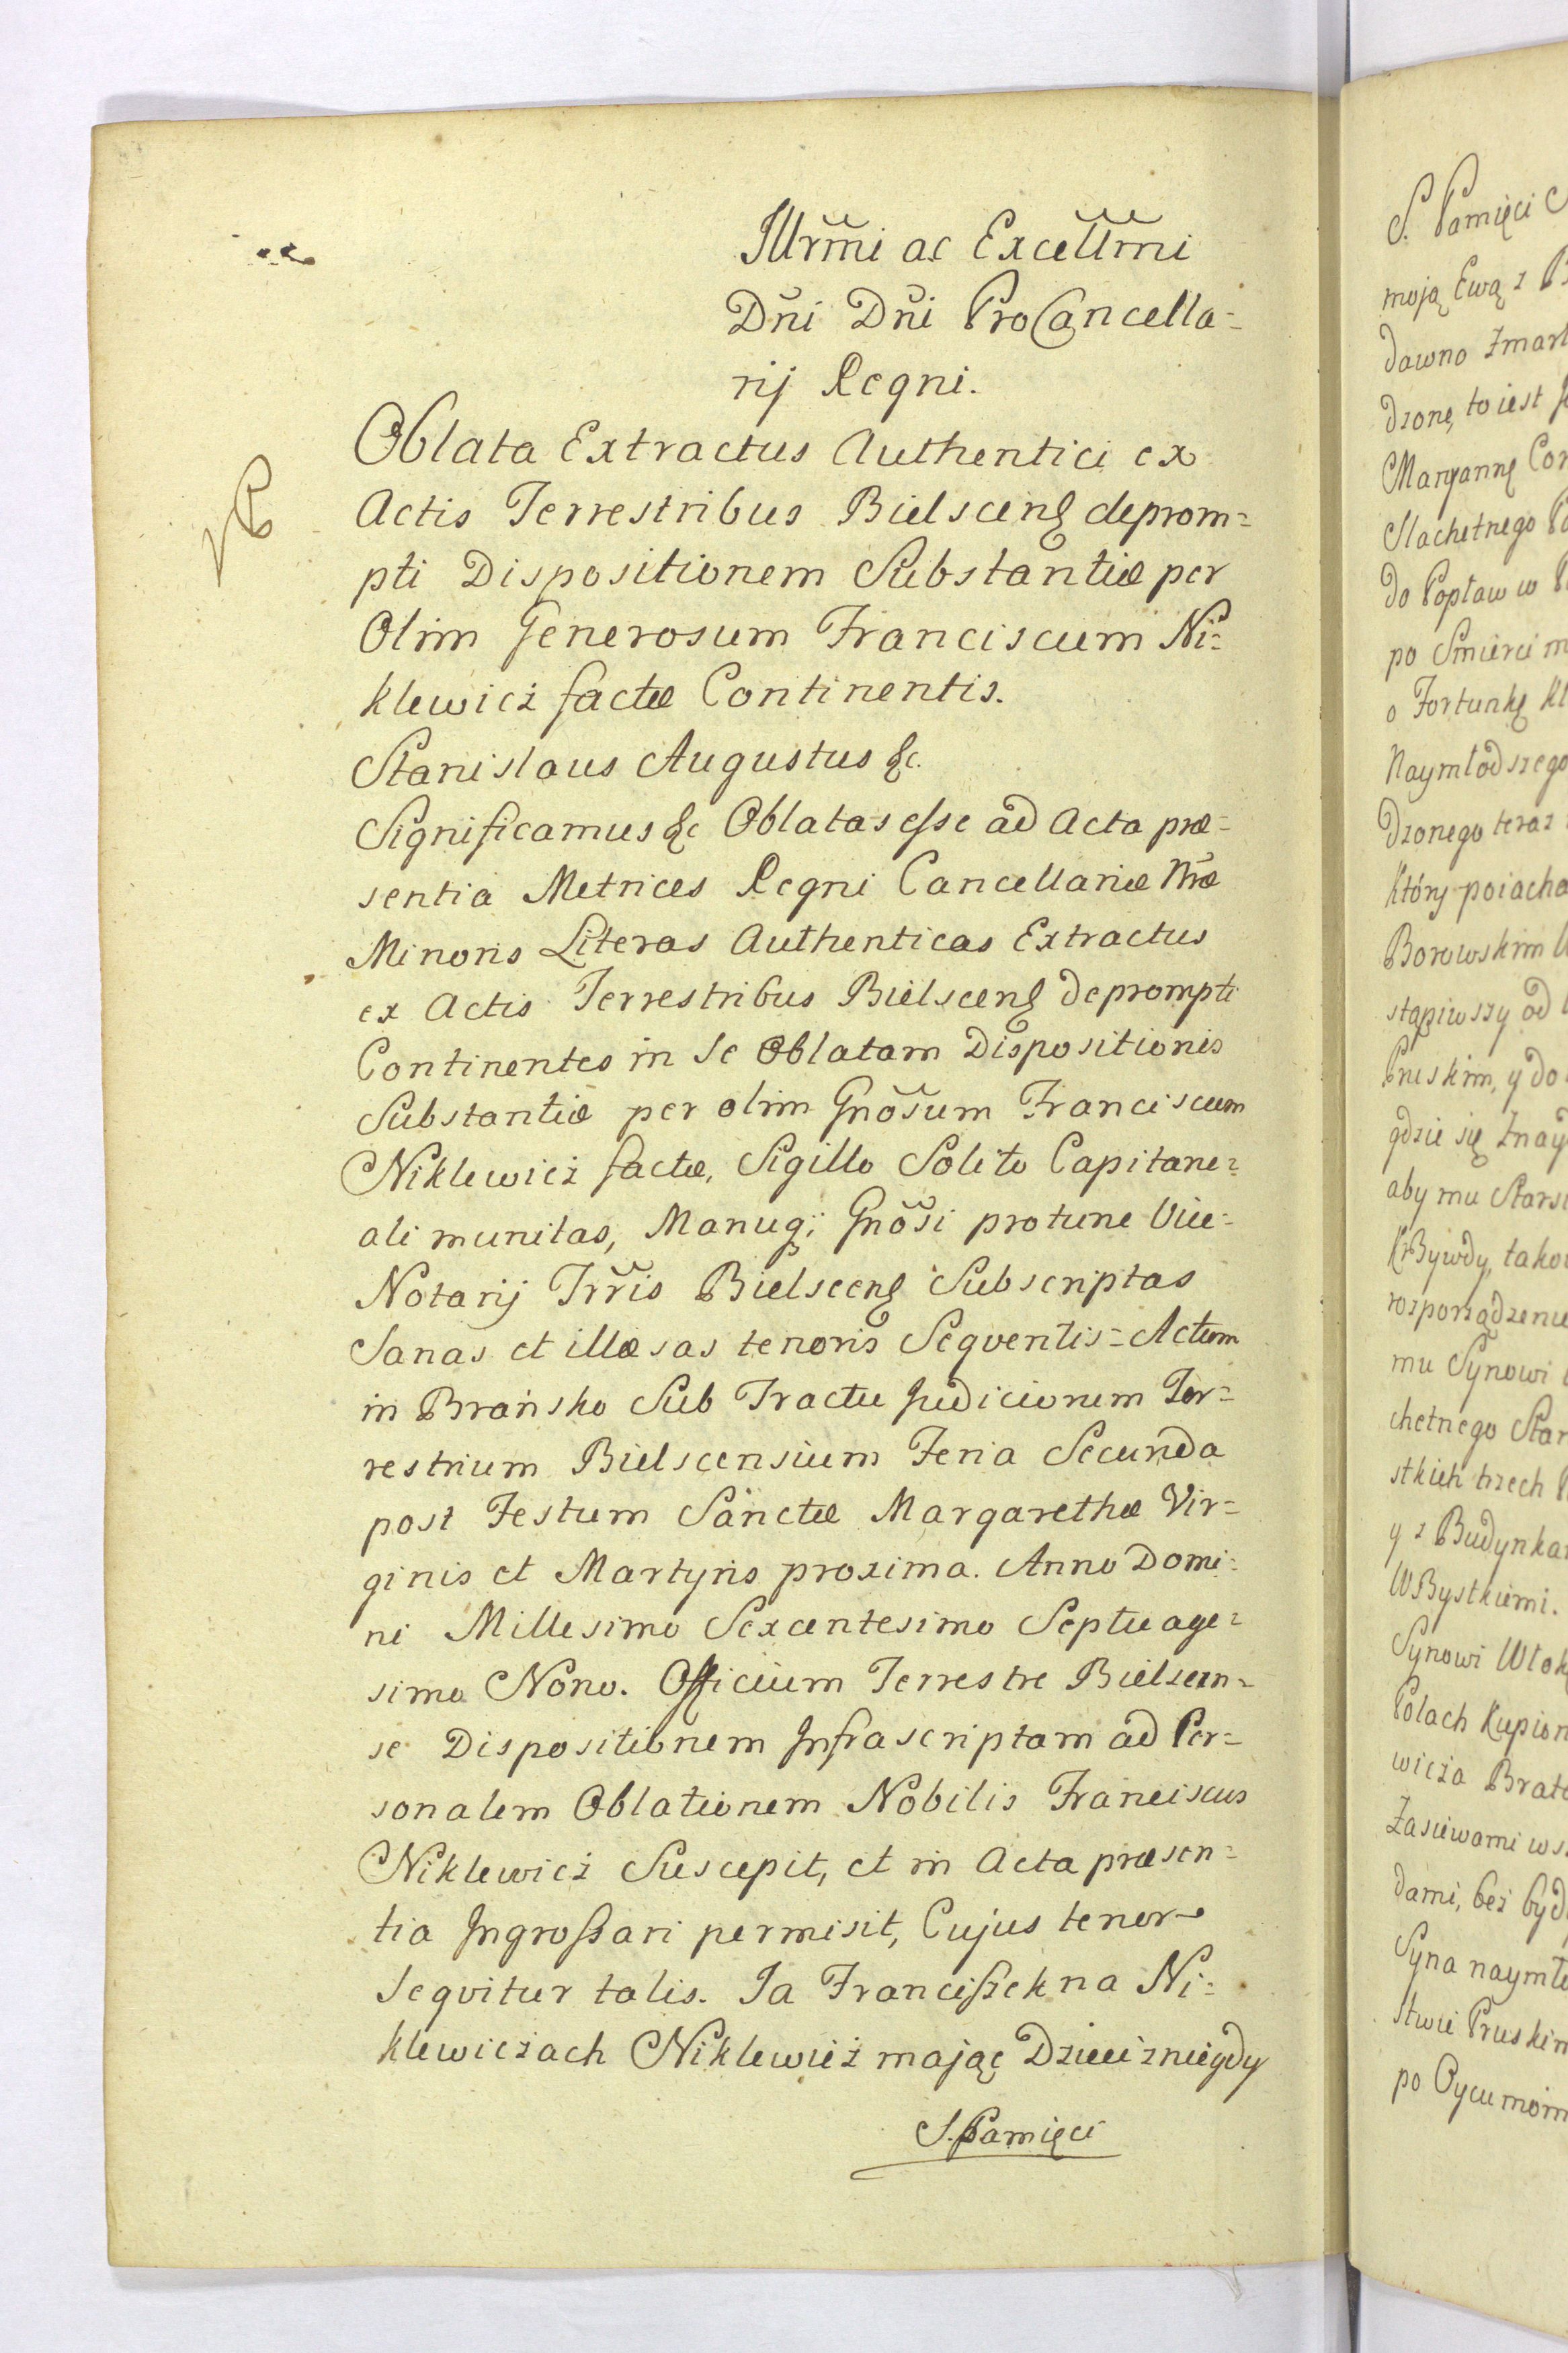 Illr̃mi ac Excellr̃mi
Dñi Dñi ProCancella=
rij Regni.
Oblata Extractus Authentici ex
Actis Terrestribus Bielscenſ deprom=
pti Dispositionem Substantiæ per
Olim Generosum Franciscum Ni=
klewicż factæ Continentis.
Stanislaus Augustus &c.
Significamus &c Oblatas eſse ad Acta præ=
sentia Metrices Regni Cancellariæ Nr̃æ
Minoris Literas Authenticas Extractus
ex Actis Terrestribus Bielscenſ deprompti
Continentes in se Oblatam Dispositionis
Substantiæ per olim Gnõsum Franciscum
Niklewicż factæ, Sigillo Solito Capitane=
ali munitas, Manuq; Gnõsi protunc Vice=
Notarij Tr̃ris Bielscenſ Subscriptas
Sanas et illæsas tenoris Seqventis = Actum
in Brańsko Sub Tractu Judiciorum Ter=
restrium Bielscensium Feria Secunda
post Festum Sanctæ Margarethæ Vir=
ginis et Martyris proxima. Anno Domi=
ni Millesimo Sexcentesimo Septuage=
simo Nono. Officium Terrestre Bielscen=
se Dispositionem Infrascriptam ad Per=
sonalem Oblationem Nobilis Franciscus
Niklewicż Suscepit, et in Acta præsen=
tia Ingroſsari permisit, Cujus tenor
Seqvitur talis. Ja Franciſzek na Ni=
klewicżach Niklewicż mając Dzieci z niegdy
S. Pamięci
S. Pamięci
moją Ewą z
dawno Zmar
dzonę, to iest
Maryannę
Slachetnego
do Popław w
po Smierci
o Fortunkę
Naymłodszego
dzonego teraz
Który poiacha
Borowskim
stąpiwszy od
Pruskim, y do
gdzie się Znay
aby mu Stars
KrBywdy, tako
rozporządzenie
mu Synowi
chetnego Star
stkich trzech
y z Budynka
WBystkiemi.
Synowi Wlok
Polach Kupion
wicża Brat
Zasiewami ws
dami, beż byd
Syna naymł
stwie Pruskim
po Oycu moim